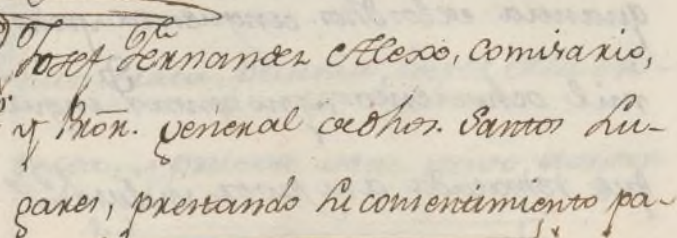 Josef Fernandez Alexo, Comisario,
y Prōr. general de dhos. Santos Lu-
gares, prestando su consentimiento pa-